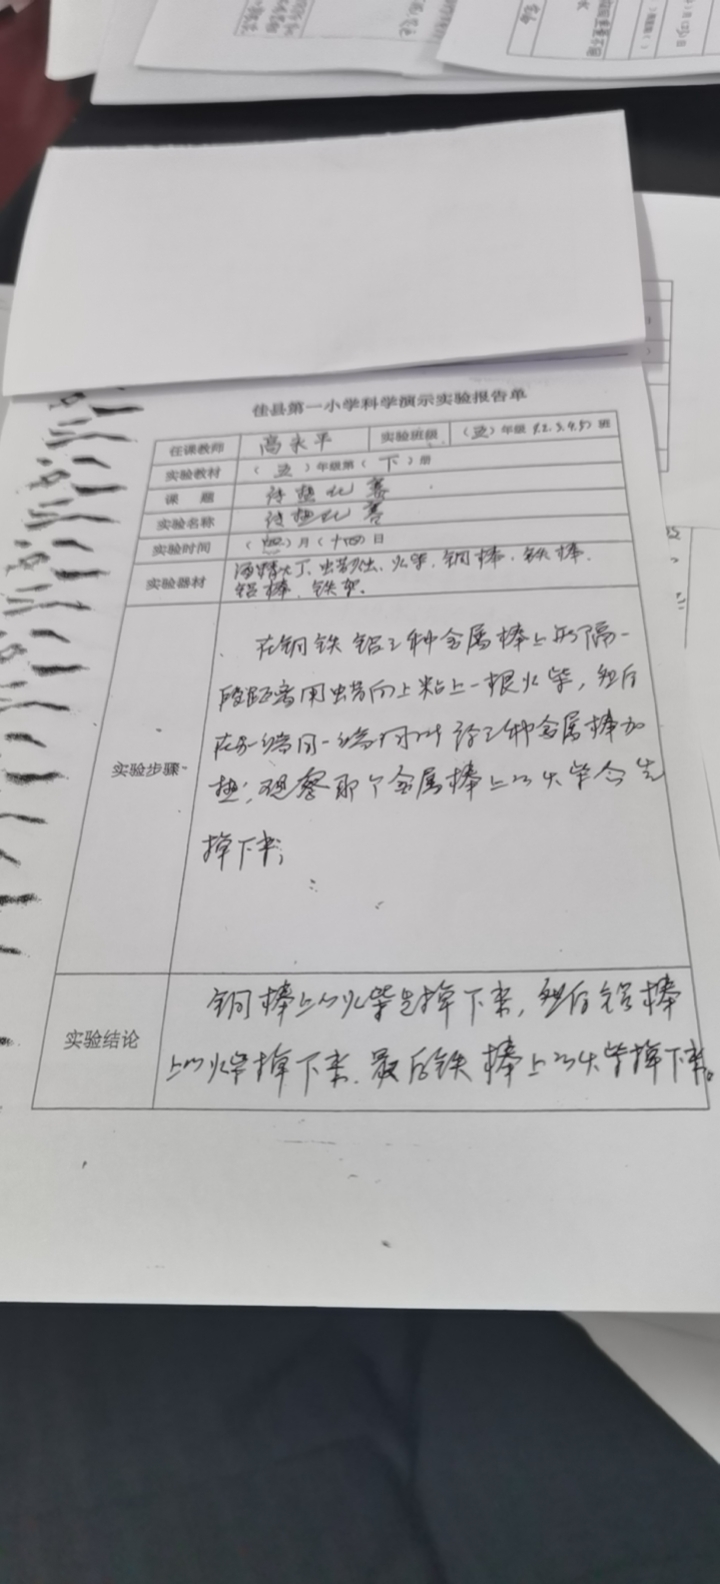 佳县第一小学科学演示实验报告单
任课教师 高永平 实验班级 ( )年级(1.2.3.4.5)班
实验教材 ( )年级第(下)册
课 题 传热比赛
实验名称 传热比赛
实验时间 (四)月(十四)日
实验器材 酒精灯、蜡烛、火柴、铜棒、铁棒、
铝棒、铁架。
实验步骤
在铜铁铝三种金属棒上每隔一
段距离用蜡向上粘上一根火柴,然后
在另一端同时给三种金属棒加
热,观察那个金属棒上的火柴会先
掉下来;
实验结论
铜棒上的火柴先掉下来,然后铝棒
上的火柴掉下来.最后铁棒上的火柴掉下来。